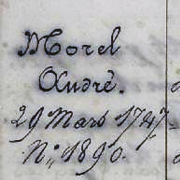 Morel
André.
29 Mars 1747.
N° 1890.